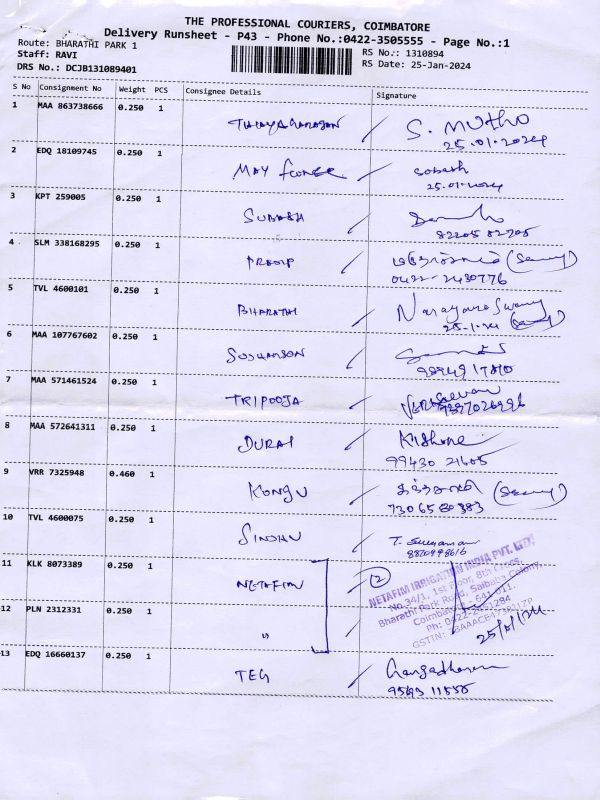 THE PROFESSIONAL COURIERS, COIMBATORE
Delivery Runsheet - P43 - Phone No.:0422-3505555 - Page No.:1
Route: BHARATHI PARK 1
Staff: RAVI
DRS No.: DCJB131089401
RS No.: 1310894
RS Date: 25-Jan-2024
S No Consignment No Weight PCS Consignee Details Signature
1 MAA 863738666 0.250 1 THIYAGARAJAN / S. MUTHU
25.01.2024
2 EDQ 18109745 0.250 1 MAY flower / Sobash
25.01.2024
3 KPT 259005 0.250 1 SUBASH /
82205 82705
4 SLM 338168295 0.250 1 PRADIP /
0422-2430776
5 TVL 4600101 0.250 1 BHARATHI / Narayana Swamy
25-1-24
6 MAA 107767602 0.250 1 /
9894917810
7 MAA 571461524 0.250 1 TRIPOOJA /
8 MAA 572641311 0.250 1 DURAI / Kishore
99430 21605
9 VRR 7325948 0.460 1 KONGU /
7306580383
10 TVL 4600075 0.250 1 SINDHU /
8870998616
11 KLK 8073389 0.250 1 NETAFIM / 2
12 PLN 2312331 0.250 1 " /
NETAFIM IRRIGATION INDIA PVT. LTD.
No.34/1, 1st Floor, 8th Cross,
Bharathi Park Road, Saibaba Colony,
Coimbatore - 641 011.
Ph: 0422-2451284
GSTIN:
25/1/24
13 EDQ 16660137 0.250 1 TEG / Gangadharan
95693 11555